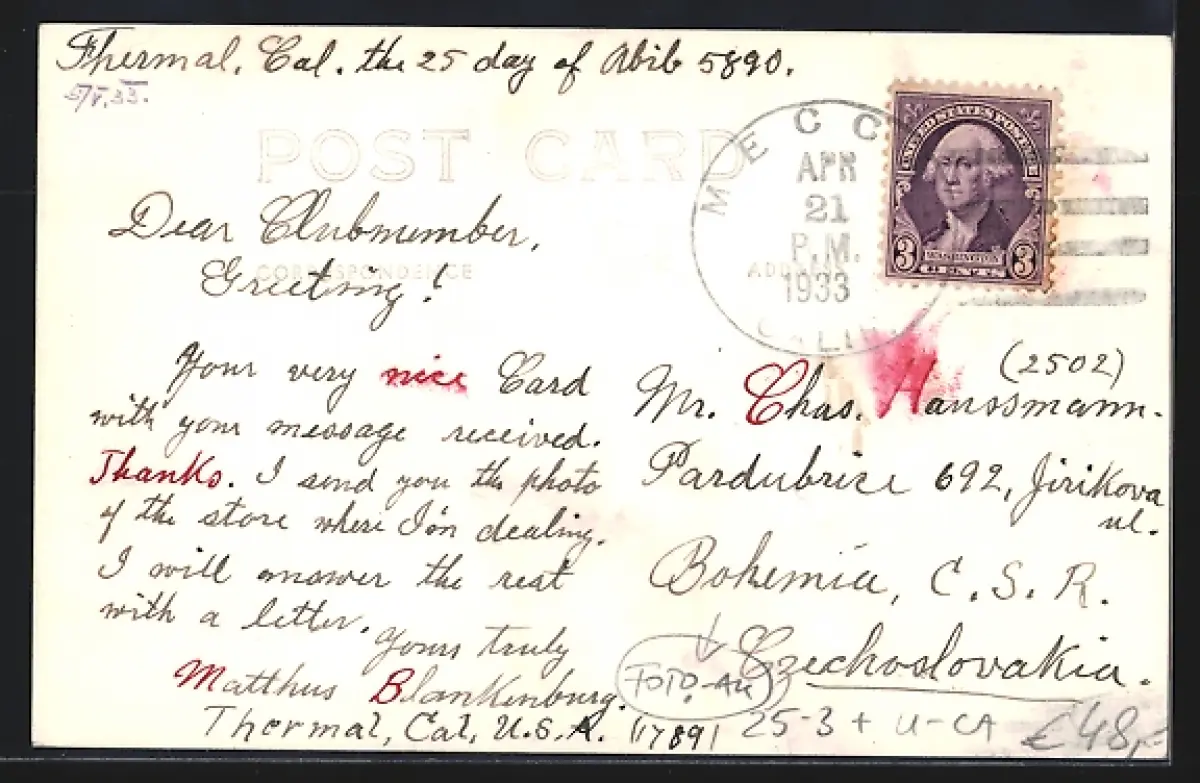 Thermal, Cal. the 25 day of Abib 5890.
5/V.33.
POST CARD
MECC
APR
21
P.M.
1933
CALIF
UNITED STATES POSTAGE
3 WASHINGTON 3
CENTS
CORRESPONDENCE
ADDRESS
Dear Clubmember,
Greeting!
Your very nice Card
with your message received.
Thanks. I send you the photo
of the store where I'm dealing.
I will answer the rest
with a letter.
Yours truly
Matthus Blankenburg.
Thermal, Cal, U.S.A. (17891
(2502)
Mr. Chas. Haussmann.
Pardubrice 692, Jirikova
ul.
Bohemia, C. S. R.
Czechoslovakia.
FOTO-AK
25-3 + U-CA €48,-